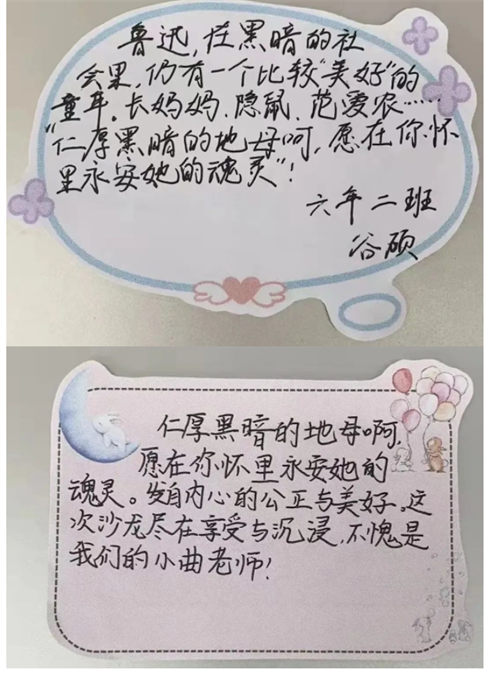 鲁迅,在黑暗的社
会里,仍有一个比较“美好”的
童年。长妈妈、隐鼠、范爱农……
“仁厚黑暗的地母呵,愿在你怀
里永安她的魂灵”!
六年二班
谷硕
仁厚黑暗的地母啊,
愿在你怀里永安她的
魂灵。发自内心的公正与美好。这
次沙龙尽在享受与沉浸,不愧是
我们的小曲老师!